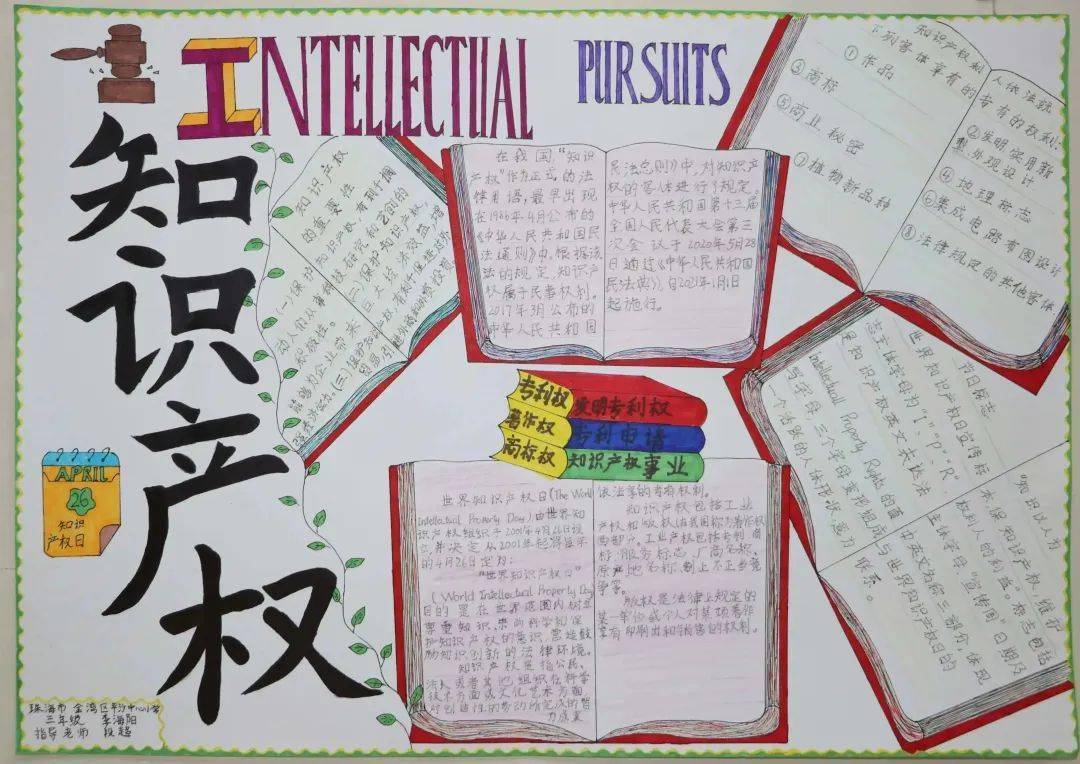 INTELLECTUAL PURSUITS
知识产权
APRIL
26
知识
产权日
珠海市 金湾区平沙中心小学
三年级 李海阳
指导老师 段超
知识产权
的重要性
(一)保护知识产权,有利于调
动人们从事科技研究和艺创的
积极性。
(二)保护知识产权,
能够为企业带来巨大经济效益,增
强经济
(三)保护知识产
权,有利于促进对外
贸易,引进外商和外资投资
在我国,“知识
产权”作为正式的法
律用语,最早出现
在1986年4月公布的
《中华人民共和国民
法通则》中,根据该
法的规定,知识产
权属于民事权利。
2017年3月公布的
《中华人民共和国
民法总则》中,对知识产
权的客体进行了规定。
中华人民共和国第十三届
全国人民代表大会第三
次会议于2020年5月28
日通过《中华人民共和国
民法典》,自2021年1月1日
起施行。
知识产权权利
人依法就
下列客体享有的
专有的权利:
①作品
②发明、实用新
型、外观设计
③商标
④地理标志
⑤商业秘密
⑥集成电路布图设计
⑦植物新品种
⑧法律规定的其他客体
专利权
著作权
商标权
发明专利权
专利申请
知识产权事业
世界知识产权日(The World
Intellectual Property Day)由世界知
识产权组织于2001年4月26日设
立,并决定从2001年起将每年
的4月26日定为:
“世界知识产权日”
(World Intellectual Property Day)
目的是在世界范围内树立
尊重知识,崇尚科学和保
护知识产权的意识,营造鼓
励知识创新的法律环境。
知识产权是指公民、
法人或者其他组织在科学
技术方面或文化艺术方面,
对创造性的劳动所完成的智
力成果
依法享的专有权利。
知识产权包括工业
产权和版权(在我国称为著作权)
两部分。工业产权包括专利,
商标,服务标志,厂商名称,
原产地名称,制止不正当竞
争等。
版权是法律上规定的
某一单位或个人对某项著作
享有印刷出和销售的权利。
节日标志
世界知识产权日宣传标
志主体字母为“I”、“P”、“R”
是知识产权英文表达法
Intellectual Property Rights的首
写字母,三个字母变形组成
一个活跃的人体形状,意为
“知识以人为
本,保知识产权,维护
权利人的利益”。标志包括
主体字母、“宣传周”日期及
中英文为称三部分,体现
与世界知识产权日的
联系。